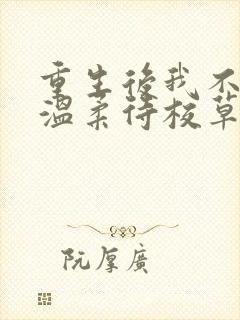 重生後我不
溫柔待校草
阮厚廣